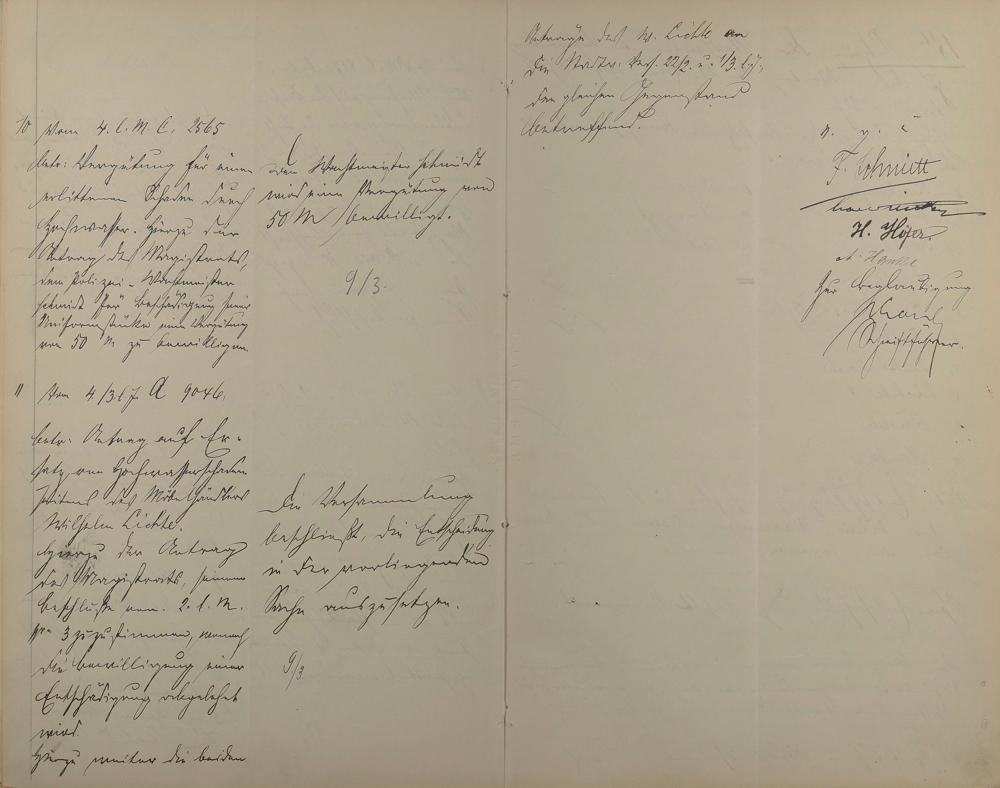 10
Vom 4. l. M. C. 2565
betr: Vergütung für einen
erlittenen Schaden durch
Hochwasser. Hierzu der
Antrag des Magistrats,
dem Polizei-Wachtmeister
Schmidt für Beschädigung seiner
Uniformstücke eine Vergütung
von 50 M zu bewilligen.
Dem Wachtmeister Schmidt
wird eine Vergütung von
50 M bewilligt.
9/3.
11
Vom 4/3. l. J. A 9046.
betr: Antrag auf Er-
satz von Hochwasserschaden
seitens des Möbelhändlers
Wilhelm Lichte.
Hierzu der Antrag
des Magistrats, seinem
Beschlusse vom 2. l. M.
No 3 zuzustimmen, wonach
die Bewilligung einer
Entschädigung abgelehnt
wird.
Hierzu weiter die beiden
Die Versammlung
beschließt, die Entscheidung
in der vorliegenden
Sache auszusetzen.
9/3.
Anträge des W. Lichte an
die Stadtv. Vers. 22/2. u. 1/3. l. J.,
den gleichen Gegenstand
betreffend.
v. g. u
F. Schmidt
H. Höfer
A. Hanke
Zur Beglaubigung
Schriftführer.